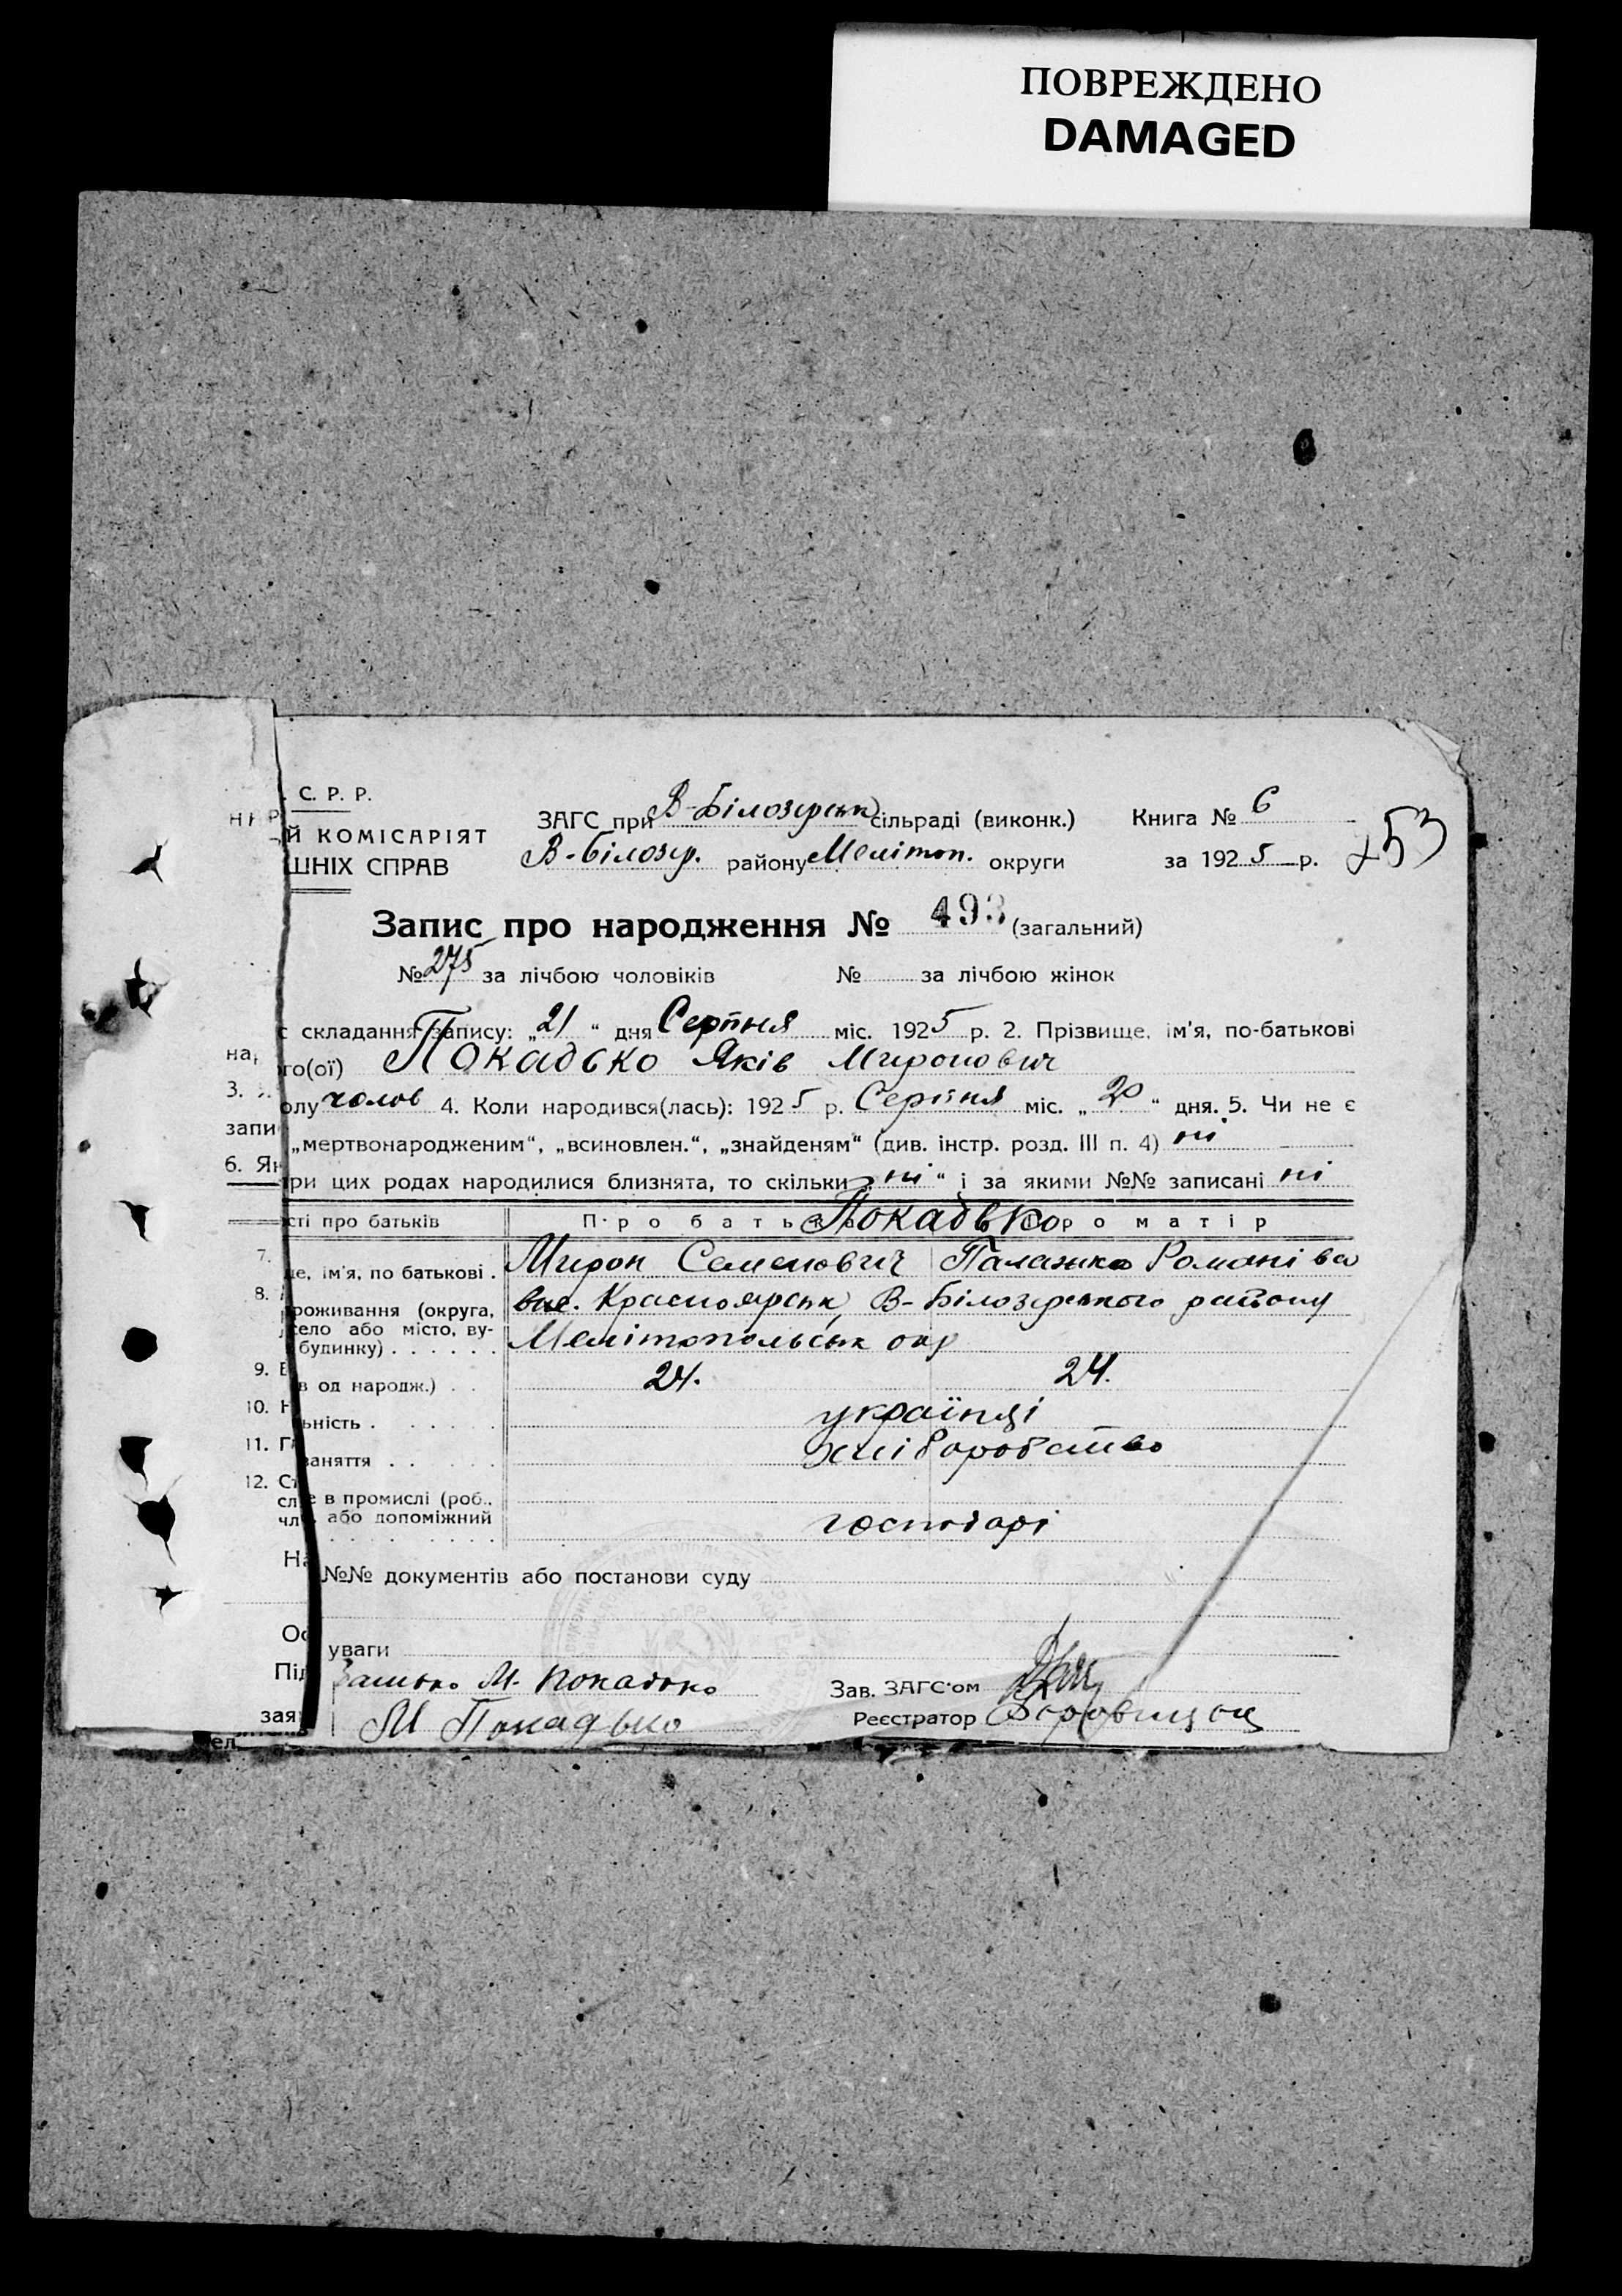 ПОВРЕЖДЕНО
DAMAGED
. С. Р. Р.
Й КОМІСАРІЯТ
ШНІХ СПРАВ
ЗАГС при В-Білозерськ сільраді (виконк.)
В-Білозер. району Меліттоп. округи
Книга № 6
за 1925 р.
253
Запис про народження № 493 (загальний)
№ 275 за лічбою чоловіків № за лічбою жінок
складання запису: „21“ дня Серпня міс. 1925 р. 2. Прізвище, ім'я, по-батькові
на го(ої) Покадько Яків Миронович
3. олу чолов 4. Коли народився(лась): 1925 р. Серпня міс. „20“ дня. 5. Чи не є
запи „мертвонародженим“, „всиновлен.“, „знайденям“ (див. інстр. розд. III п. 4) ні
6. Як ри цих родах народилися близнята, то скільки „ні“ і за якими №№ записані ні
сті про батьків Про батька Покадько Про матір
7. це, ім'я, по батькові . Мирон Семенович Палажка Романівна
8. роживання (округа, вис. Красноярськ, В-Білозерського району
село або місто, ву-
будинку) . . . . . . Мелітопольськ окр
9. в од народж.) . . 24. 24.
10. Н ьність . . . . . українці
11. Г заняття . . . . хліборобство
12. Ст
сл е в промислі (роб.,
чл або допоміжний господарі
На №№ документів або постанови суду
Ос уваги
Під Батько М. Покадько
зая М Покадько
Зав. ЗАГС'ом
Реєстратор